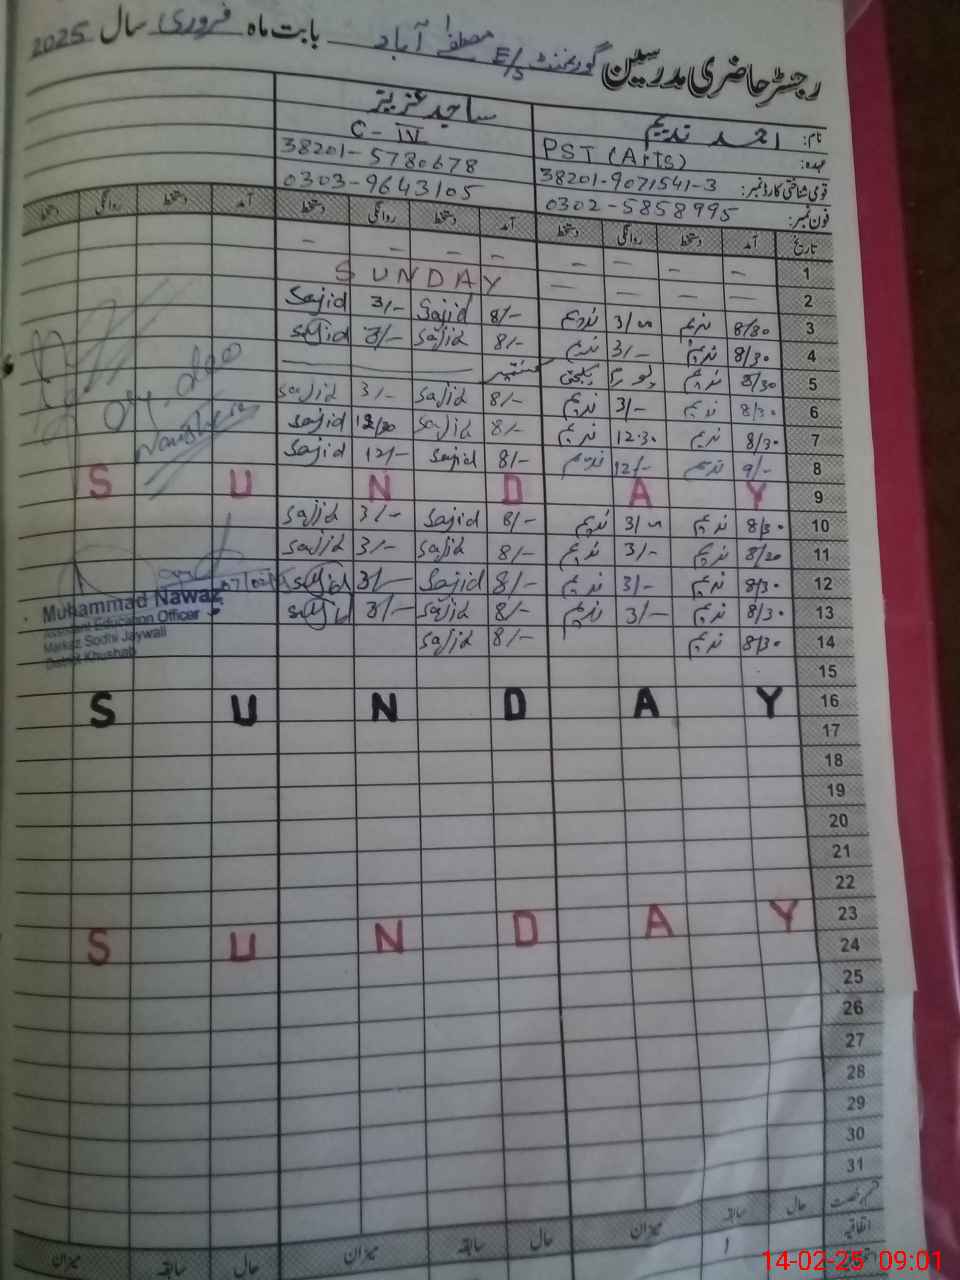 رجسٹر حاضری مدرسین گورنمنٹ E/S مصطفیٰ آباد بابت ماہ فروری سال 2025
نام: احمد ندیم ساجد عزیز
عہدہ: PST (Arts) C-IV
قومی شناختی کارڈ نمبر: 38201-9071541-3 38201-5780678
فون نمبر: 0302-5858995 0303-9643105
تاریخ آمد دستخط روانگی دستخط آمد دستخط روانگی دستخط آمد دستخط روانگی دستخط
1 — — — — — — — —
2 — — — — SUNDAY
3 8/30 ندیم 3/00 ندیم 8/- Sajid 3/- Sajid
4 8/30 ندیم 3/- ندیم 8/- Sajid 3/- Sajid
5 8/30 ندیم
6 8/30 ندیم 3/- ندیم 8/- Sajid 3/- Sajid
7 8/30 ندیم 12.30 ندیم 8/- Sajid 12/30 Sajid
8 9/- ندیم 12/- ندیم 8/- Sajid 12/- Sajid
9 S U N D A Y
10 8/30 ندیم 3/00 ندیم 8/- Sajid 3/- Sajid
11 8/30 ندیم 3/- ندیم 8/- Sajid 3/- Sajid
12 8/30 ندیم 3/- ندیم 8/- Sajid 3/- Sajid
13 8/30 ندیم 3/- ندیم 8/- Sajid 3/- Sajid
14 8/30 ندیم 8/- Sajid
Muhammad Nawaz
Assistant Education Officer
Markaz Sodhi Jaywali
District Khushab
15
16 S U N D A Y
17
18
19
20
21
22
23 S U N D A Y
24
25
26
27
28
29
30
31
قسم رخصت حال سابقہ میزان حال سابقہ میزان حال سابقہ میزان
اتفاقیہ 1
14-02-25 09:01